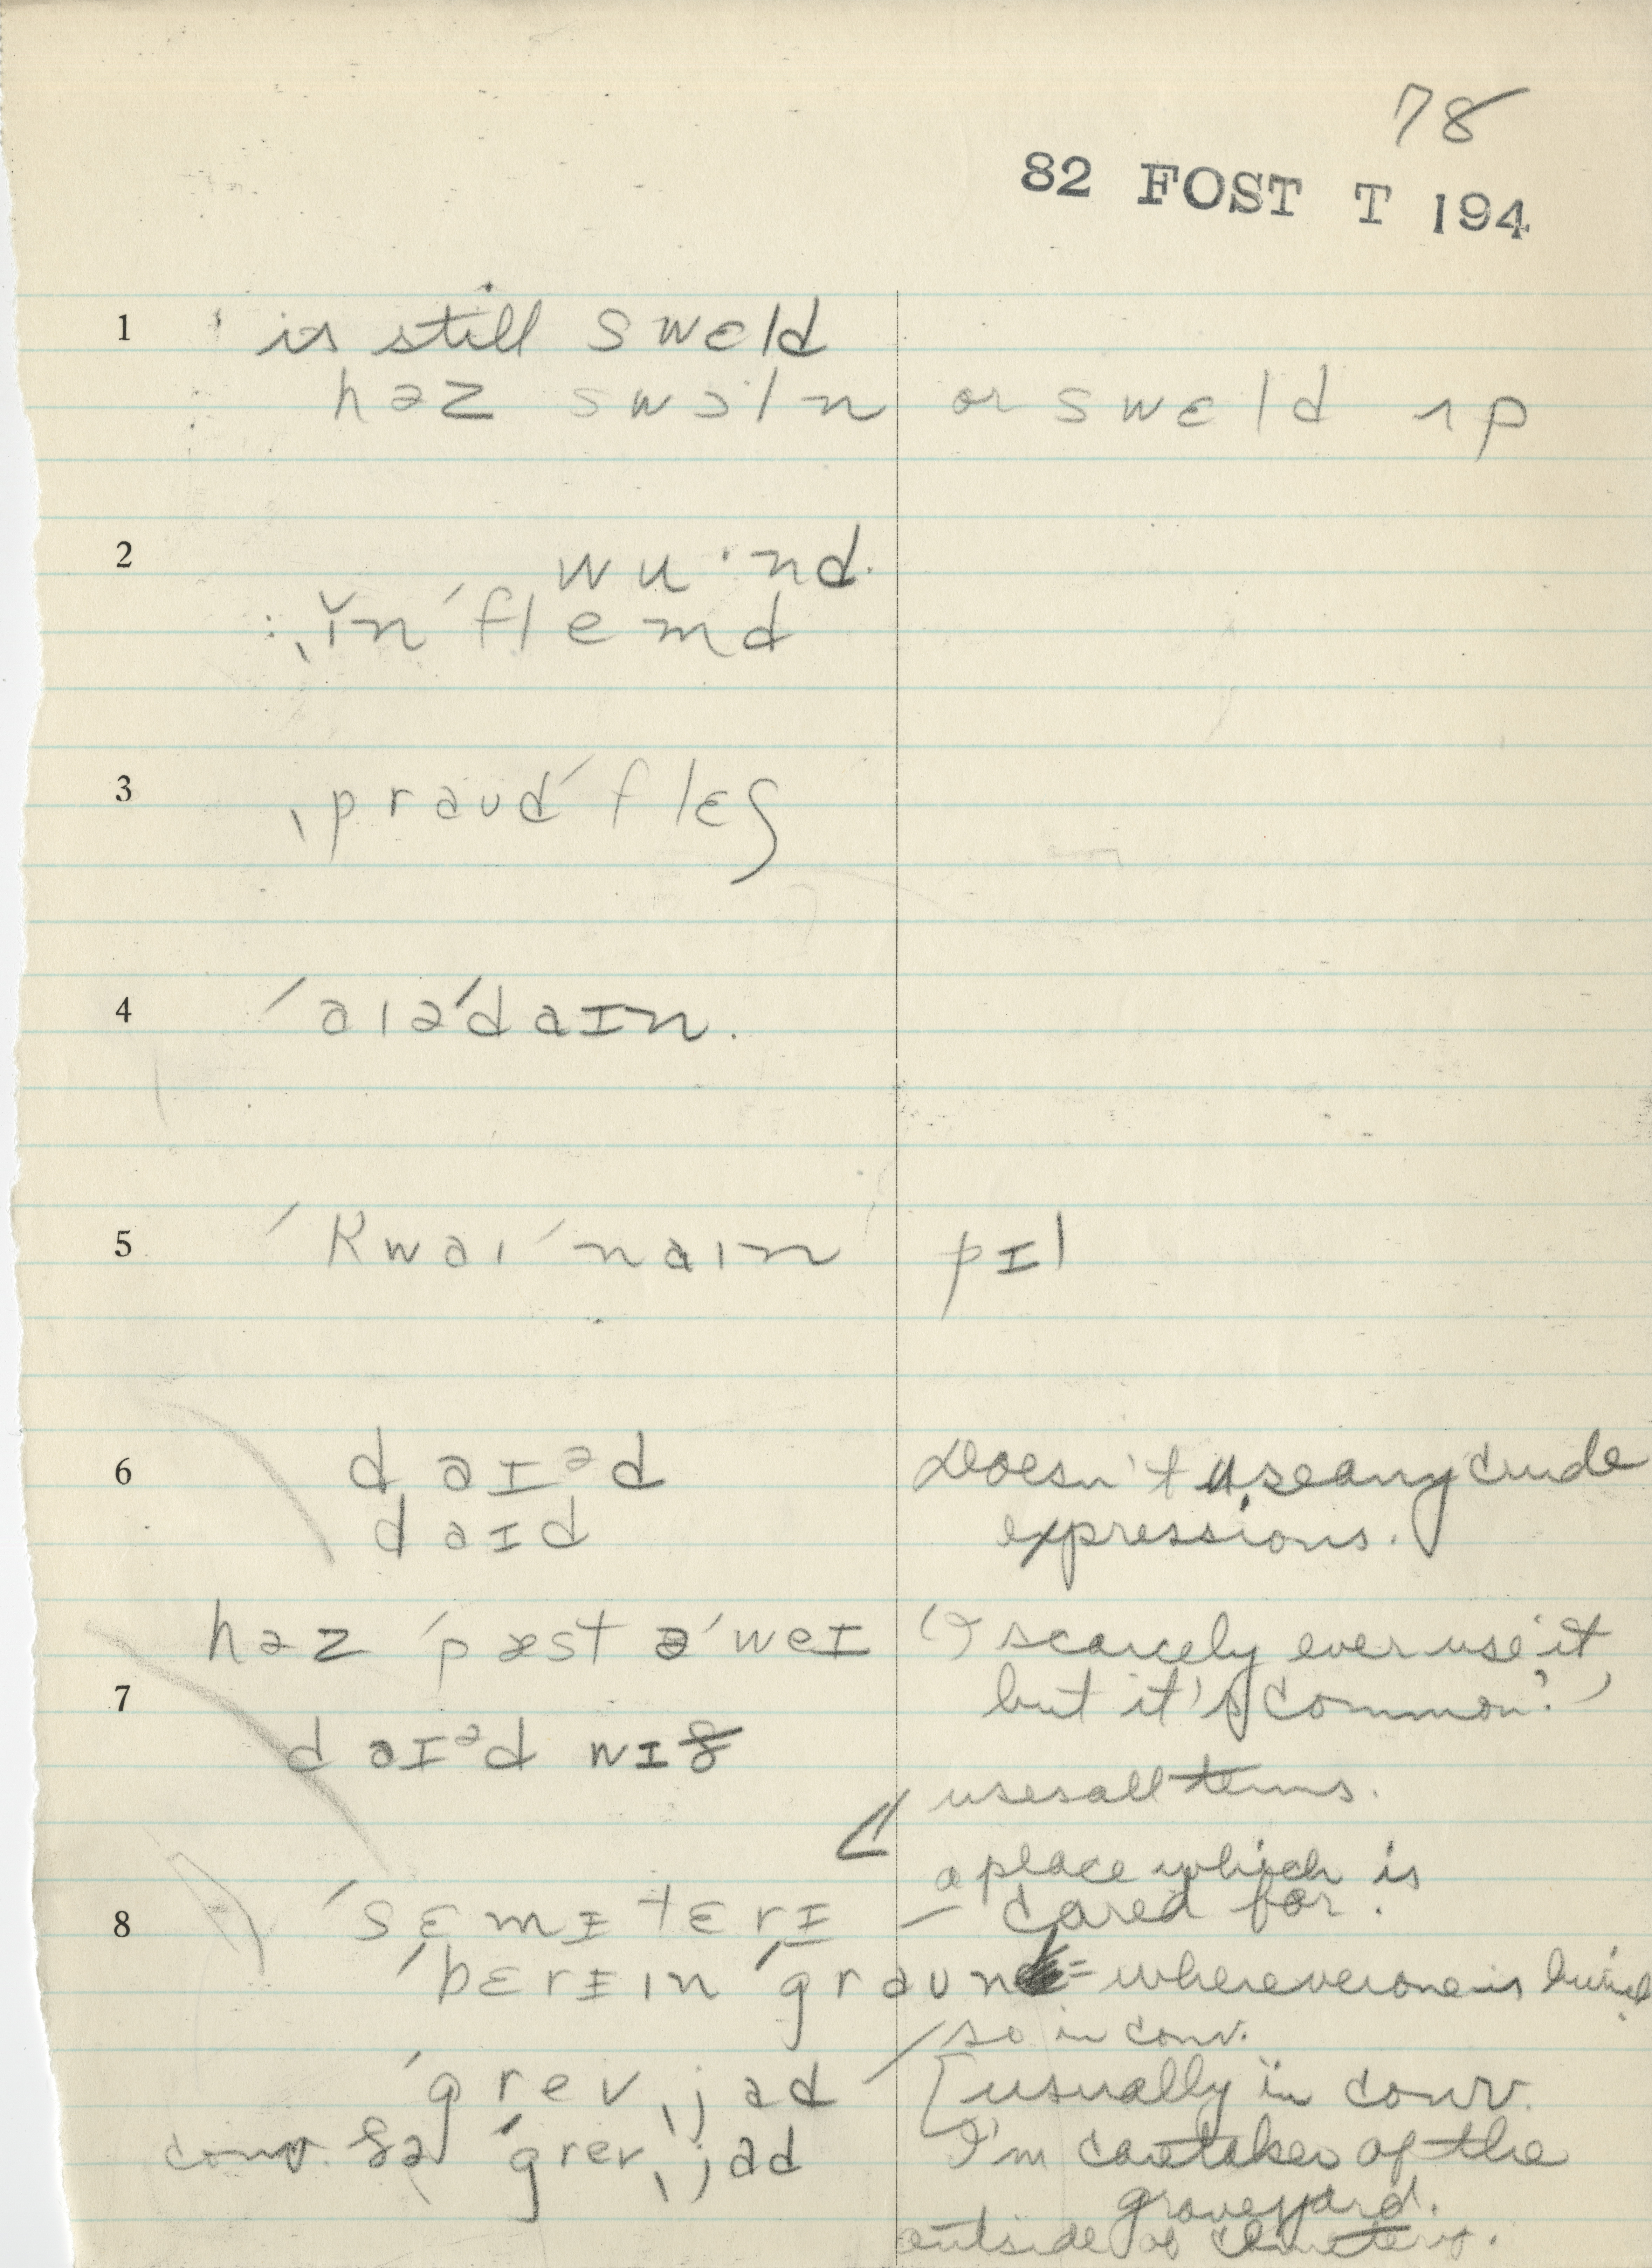 78
82 FOST T 194
1 is still swɛld
həz swɔln or swɛld ʌp
2 wu·nd.
ˌĭnˈflemd
3 ˌpraudˈflɛʃ
4 ˈaɪəˈdaɪn.
5 ˈkwaɪˈnaɪn pɪl
6 daɪᵊd Doesn't use any crude
daɪd expressions.
həz ˈpæst əˈweɪ ("I scarcely ever use it
7 but it's common.")
daɪᵊd wɪð
uses all terms.
a place which is
8 ˈsɛmɪtɛrɪ — cared for.
ˈbɛrɪɪn ˈgraun = wherever one is buried
so in conv.
ˈgrevˌjad [usually in conv.
conv. ðə ˈgrevˌjad I'm caretaker of the
graveyard.
outside of cemetery.